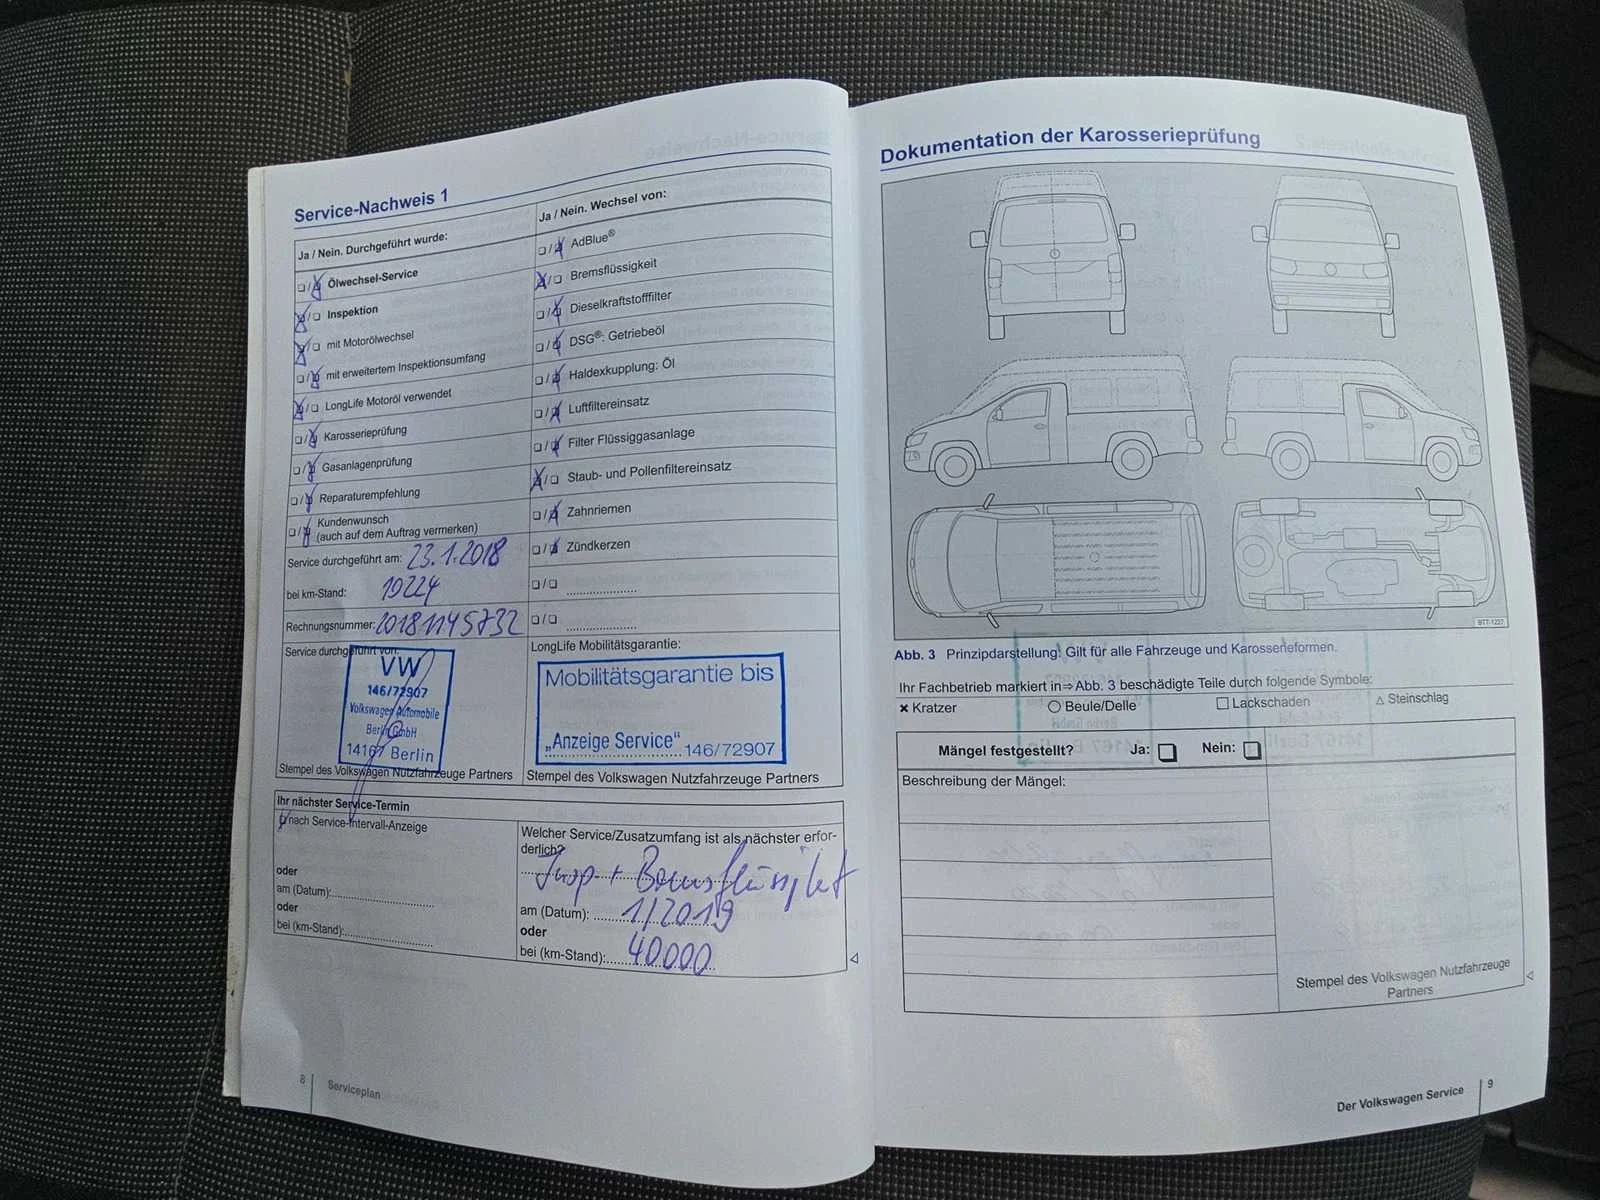 Service-Nachweis 1
Ja / Nein. Durchgeführt wurde:
Ölwechsel-Service
Inspektion
mit Motorölwechsel
mit erweitertem Inspektionsumfang
LongLife Motoröl verwendet
Karosserieprüfung
Gasanlagenprüfung
Reparaturempfehlung
Kundenwunsch
(auch auf dem Auftrag vermerken)
Service durchgeführt am: 23.1.2018
bei km-Stand: 19224
Rechnungsnummer: 20181145732
Service durchgeführt von:
VW
146/72907
Volkswagen Automobile
Berlin GmbH
14167 Berlin
Stempel des Volkswagen Nutzfahrzeuge Partners
Ja / Nein. Wechsel von:
AdBlue®
Bremsflüssigkeit
Dieselkraftstofffilter
DSG®: Getriebeöl
Haldexkupplung: Öl
Luftfiltereinsatz
Filter Flüssiggasanlage
Staub- und Pollenfiltereinsatz
Zahnriemen
Zündkerzen
LongLife Mobilitätsgarantie:
Mobilitätsgarantie bis
„Anzeige Service“ 146/72907
Stempel des Volkswagen Nutzfahrzeuge Partners
Ihr nächster Service-Termin
nach Service-Intervall-Anzeige
oder
am (Datum):
oder
bei (km-Stand):
Welcher Service/Zusatzumfang ist als nächster erfor-
derlich?
Insp + Bremsflüssigket
am (Datum): 1/2019
oder
bei (km-Stand): 40000
8 Serviceplan
Dokumentation der Karosserieprüfung
BTT-1227
Abb. 3 Prinzipdarstellung: Gilt für alle Fahrzeuge und Karosserieformen.
Ihr Fachbetrieb markiert in ⇒ Abb. 3 beschädigte Teile durch folgende Symbole:
✖ Kratzer ○ Beule/Delle □ Lackschaden △ Steinschlag
Mängel festgestellt? Ja: Nein:
Beschreibung der Mängel:
Stempel des Volkswagen Nutzfahrzeuge
Partners
Der Volkswagen Service 9